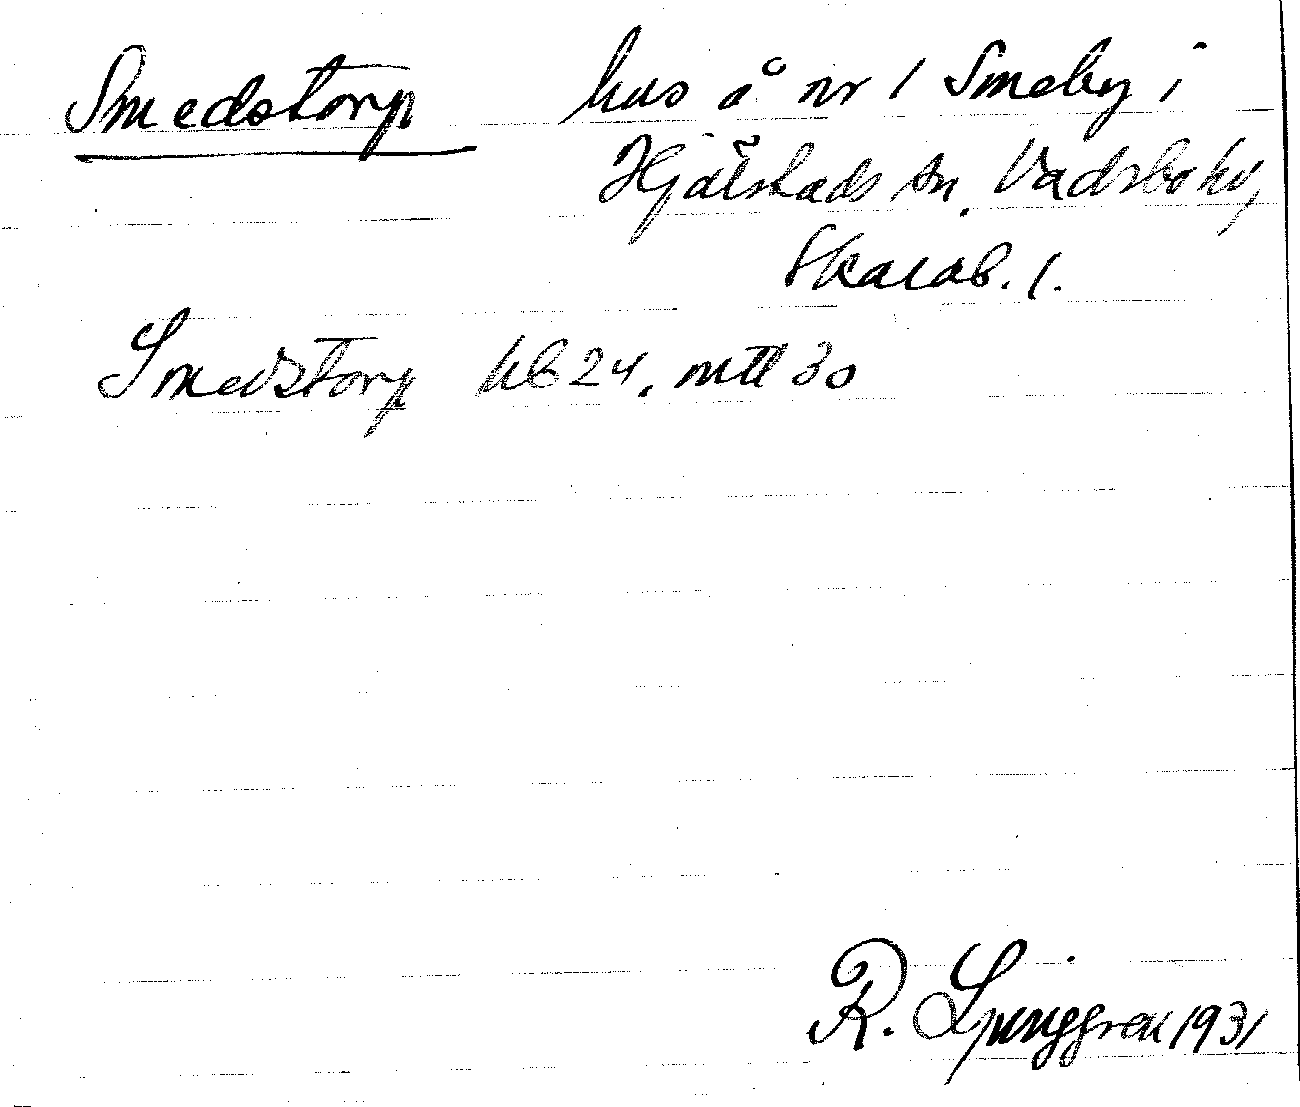 Smedstorp hus å nr 1 Smeby i
Hjälstads sn. Vadsbo hd,
Skarab. l.
Smedstorp hb 24, mtl 30
R. Ljunggren 1931